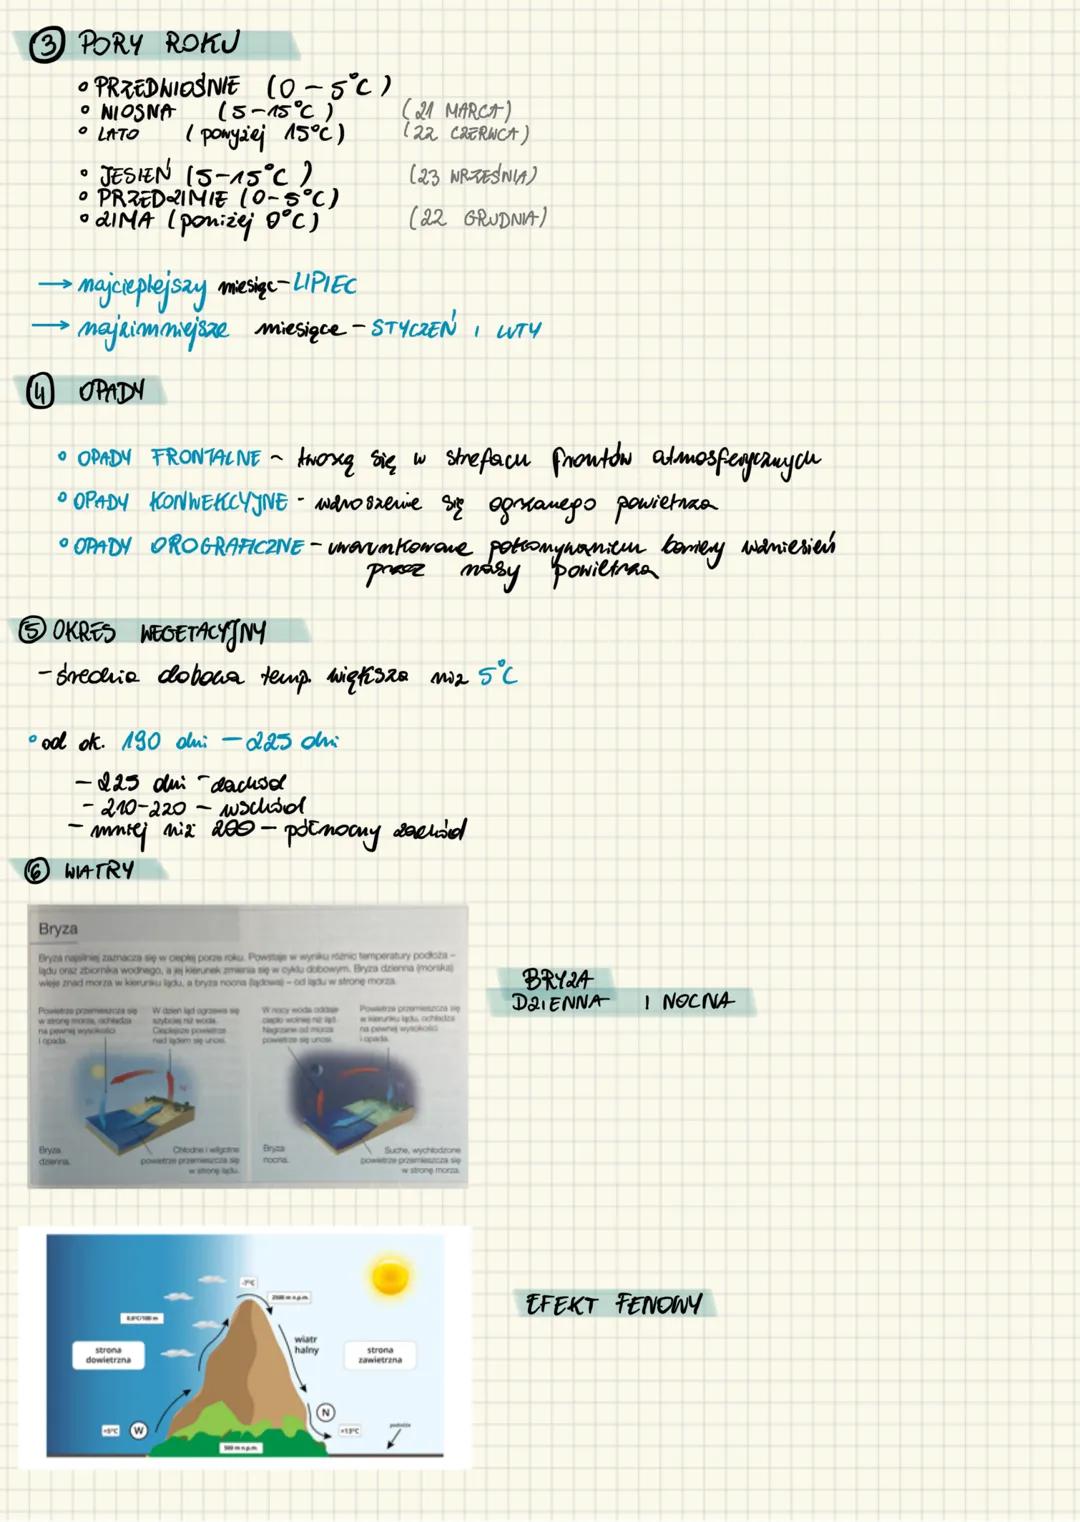 3 PORY ROKU
• PRZEDWIOŚNIE (0-5°C)
• WIOSNA (5-15°C) (21 MARCA)
• LATO (powyżej 15°C) (22 CZERWCA)
• JESIEŃ (5-15°C) (23 WRZEŚNIA)
• PRZEDZIMIE (0-5°C)
• ZIMA (poniżej 0°C) (22 GRUDNIA)
→ najcieplejszy miesiąc - LIPIEC
→ najzimniejsze miesiące - STYCZEŃ I LUTY
4 OPADY
• OPADY FRONTALNE - tworzą się w strefach frontów atmosferycznych
• OPADY KONWEKCYJNE - wznoszenie się ogrzanego powietrza
• OPADY OROGRAFICZNE - uwarunkowane pokonywaniem bariery wzniesień
przez masy powietrza
5 OKRES WEGETACYJNY
- średnia dobowa temp. większa niż 5°C
• od ok. 190 dni - 225 dni
- 225 dni - zachód
- 210-220 - wschód
- mniej niż 200 - północny zachód
6 WIATRY
Bryza
Bryza najsilniej zaznacza się w ciepłej porze roku. Powstaje w wyniku różnic temperatury podłoża –
lądu oraz zbiornika wodnego, a jej kierunek zmienia się w cyklu dobowym. Bryza dzienna (morska)
wieje znad morza w kierunku lądu, a bryza nocna (lądowa) – od lądu w stronę morza.
Powietrze przemieszcza się
w stronę morza, ochładza
na pewnej wysokości
i opada.
W dzień ląd ogrzewa się
szybciej niż woda.
Cieplejsze powietrze
nad lądem się unosi.
W nocy woda oddaje
ciepło wolniej niż ląd.
Nagrzane od morza
powietrze się unosi.
Powietrze przemieszcza się
w kierunku lądu, ochładza
na pewnej wysokości
i opada.
Bryza
dzienna.
Chłodne i wilgotne
powietrze przemieszcza się
w stronę lądu.
Bryza
nocna.
Suche, wychłodzone
powietrze przemieszcza się
w stronę morza.
BRYZA
DZIENNA I NOCNA
-7°C
2500 m n.p.m.
0,6°C/100 m
strona
dowietrzna
wiatr
halny
strona
zawietrzna
+5°C
W
N
+13°C
500 m n.p.m.
EFEKT FENOWY